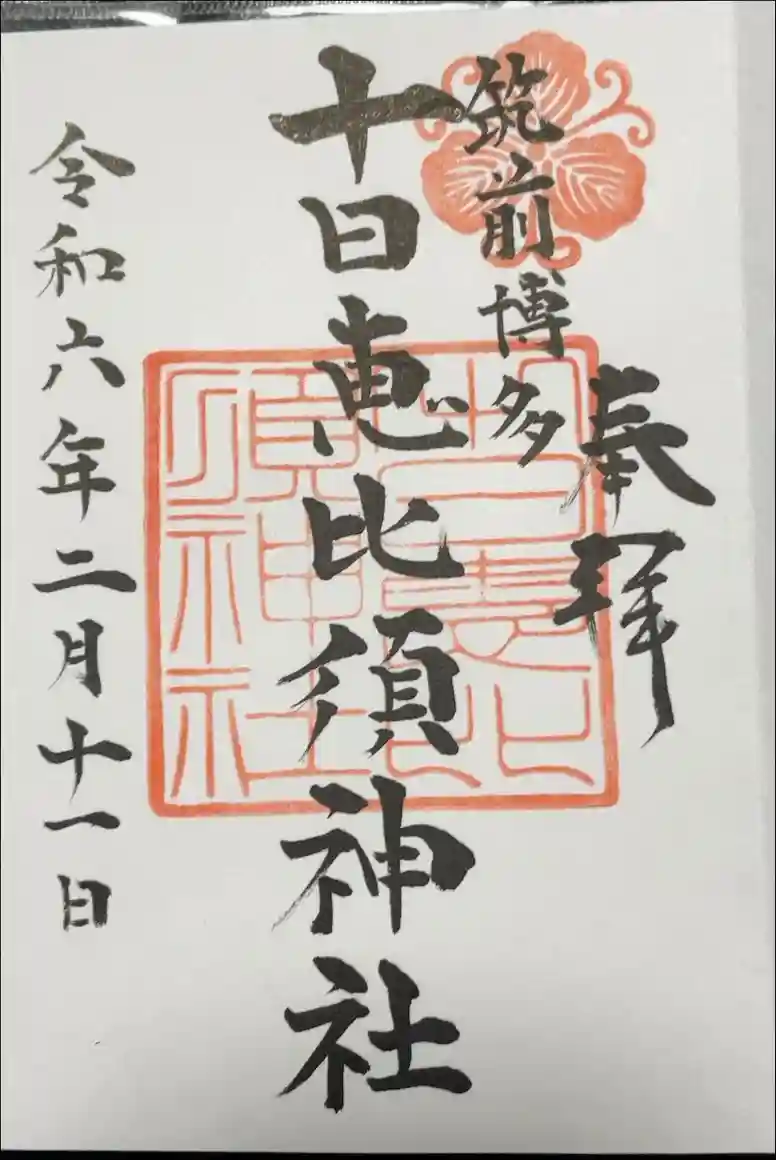 奉拝
筑前博多
十日恵比須神社
令和六年二月十一日
十日恵比
須神社